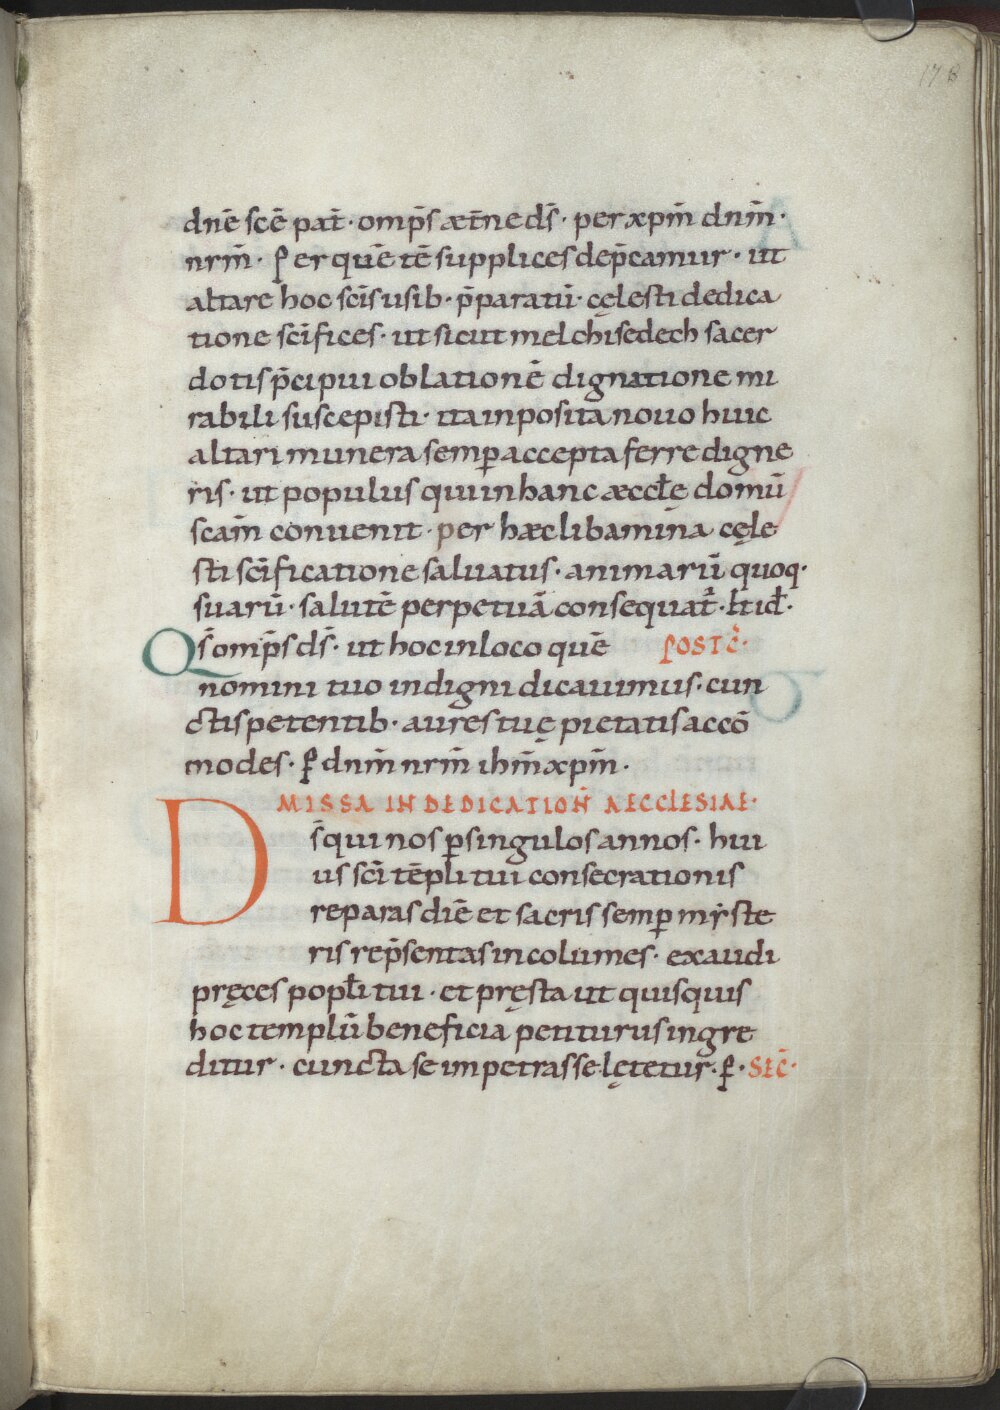 178
dnē scē pat̄· omp̄s æt̄ne ds̄· per xpm̄ dnm̄·
nrm̄· Per quē tē supplices dep̄camur· ut
altare hoc scīs usib· p̄paratū· cęlesti dedica
tione scīfices· ut sicut melchisedech sacer
dotis p̄cipui oblationē dignatione mi
rabili suscepisti· ita inposita nouo huic
altari munera semꝑ accepta ferre digne
ris· ut populus qui in hanc æccl̄ę domū
scam̄ conuenit· per hæc libamina cęle
sti scīficatione saluatus· animarū quoq·
suarū· salutē perpetuā consequat̄· ꝑ id̄·
Qs̄ omp̄s ds̄· ut hoc in loco quē POSTC̄·
nomini tuo indigni dicauimus· cun
ctis petentib· aures tuę pietatis accō
modes· ꝑ dnm̄ nrm̄ ihm̄ xpm̄·
MISSA IN DEDICATION̄ AECCLESIAE·
Ds̄ qui nos ꝑ singulos annos· hui
us scī tēpli tui consecrationis
reparas diē et sacris semꝑ mẏste
riis rep̄sentas incolumes· exaudi
pręces popl̄i tui· et pręsta ut quisquis
hoc templū beneficia petiturus ingre
ditur· cuncta se impetrasse lętetur· ꝑ· SEC̄·